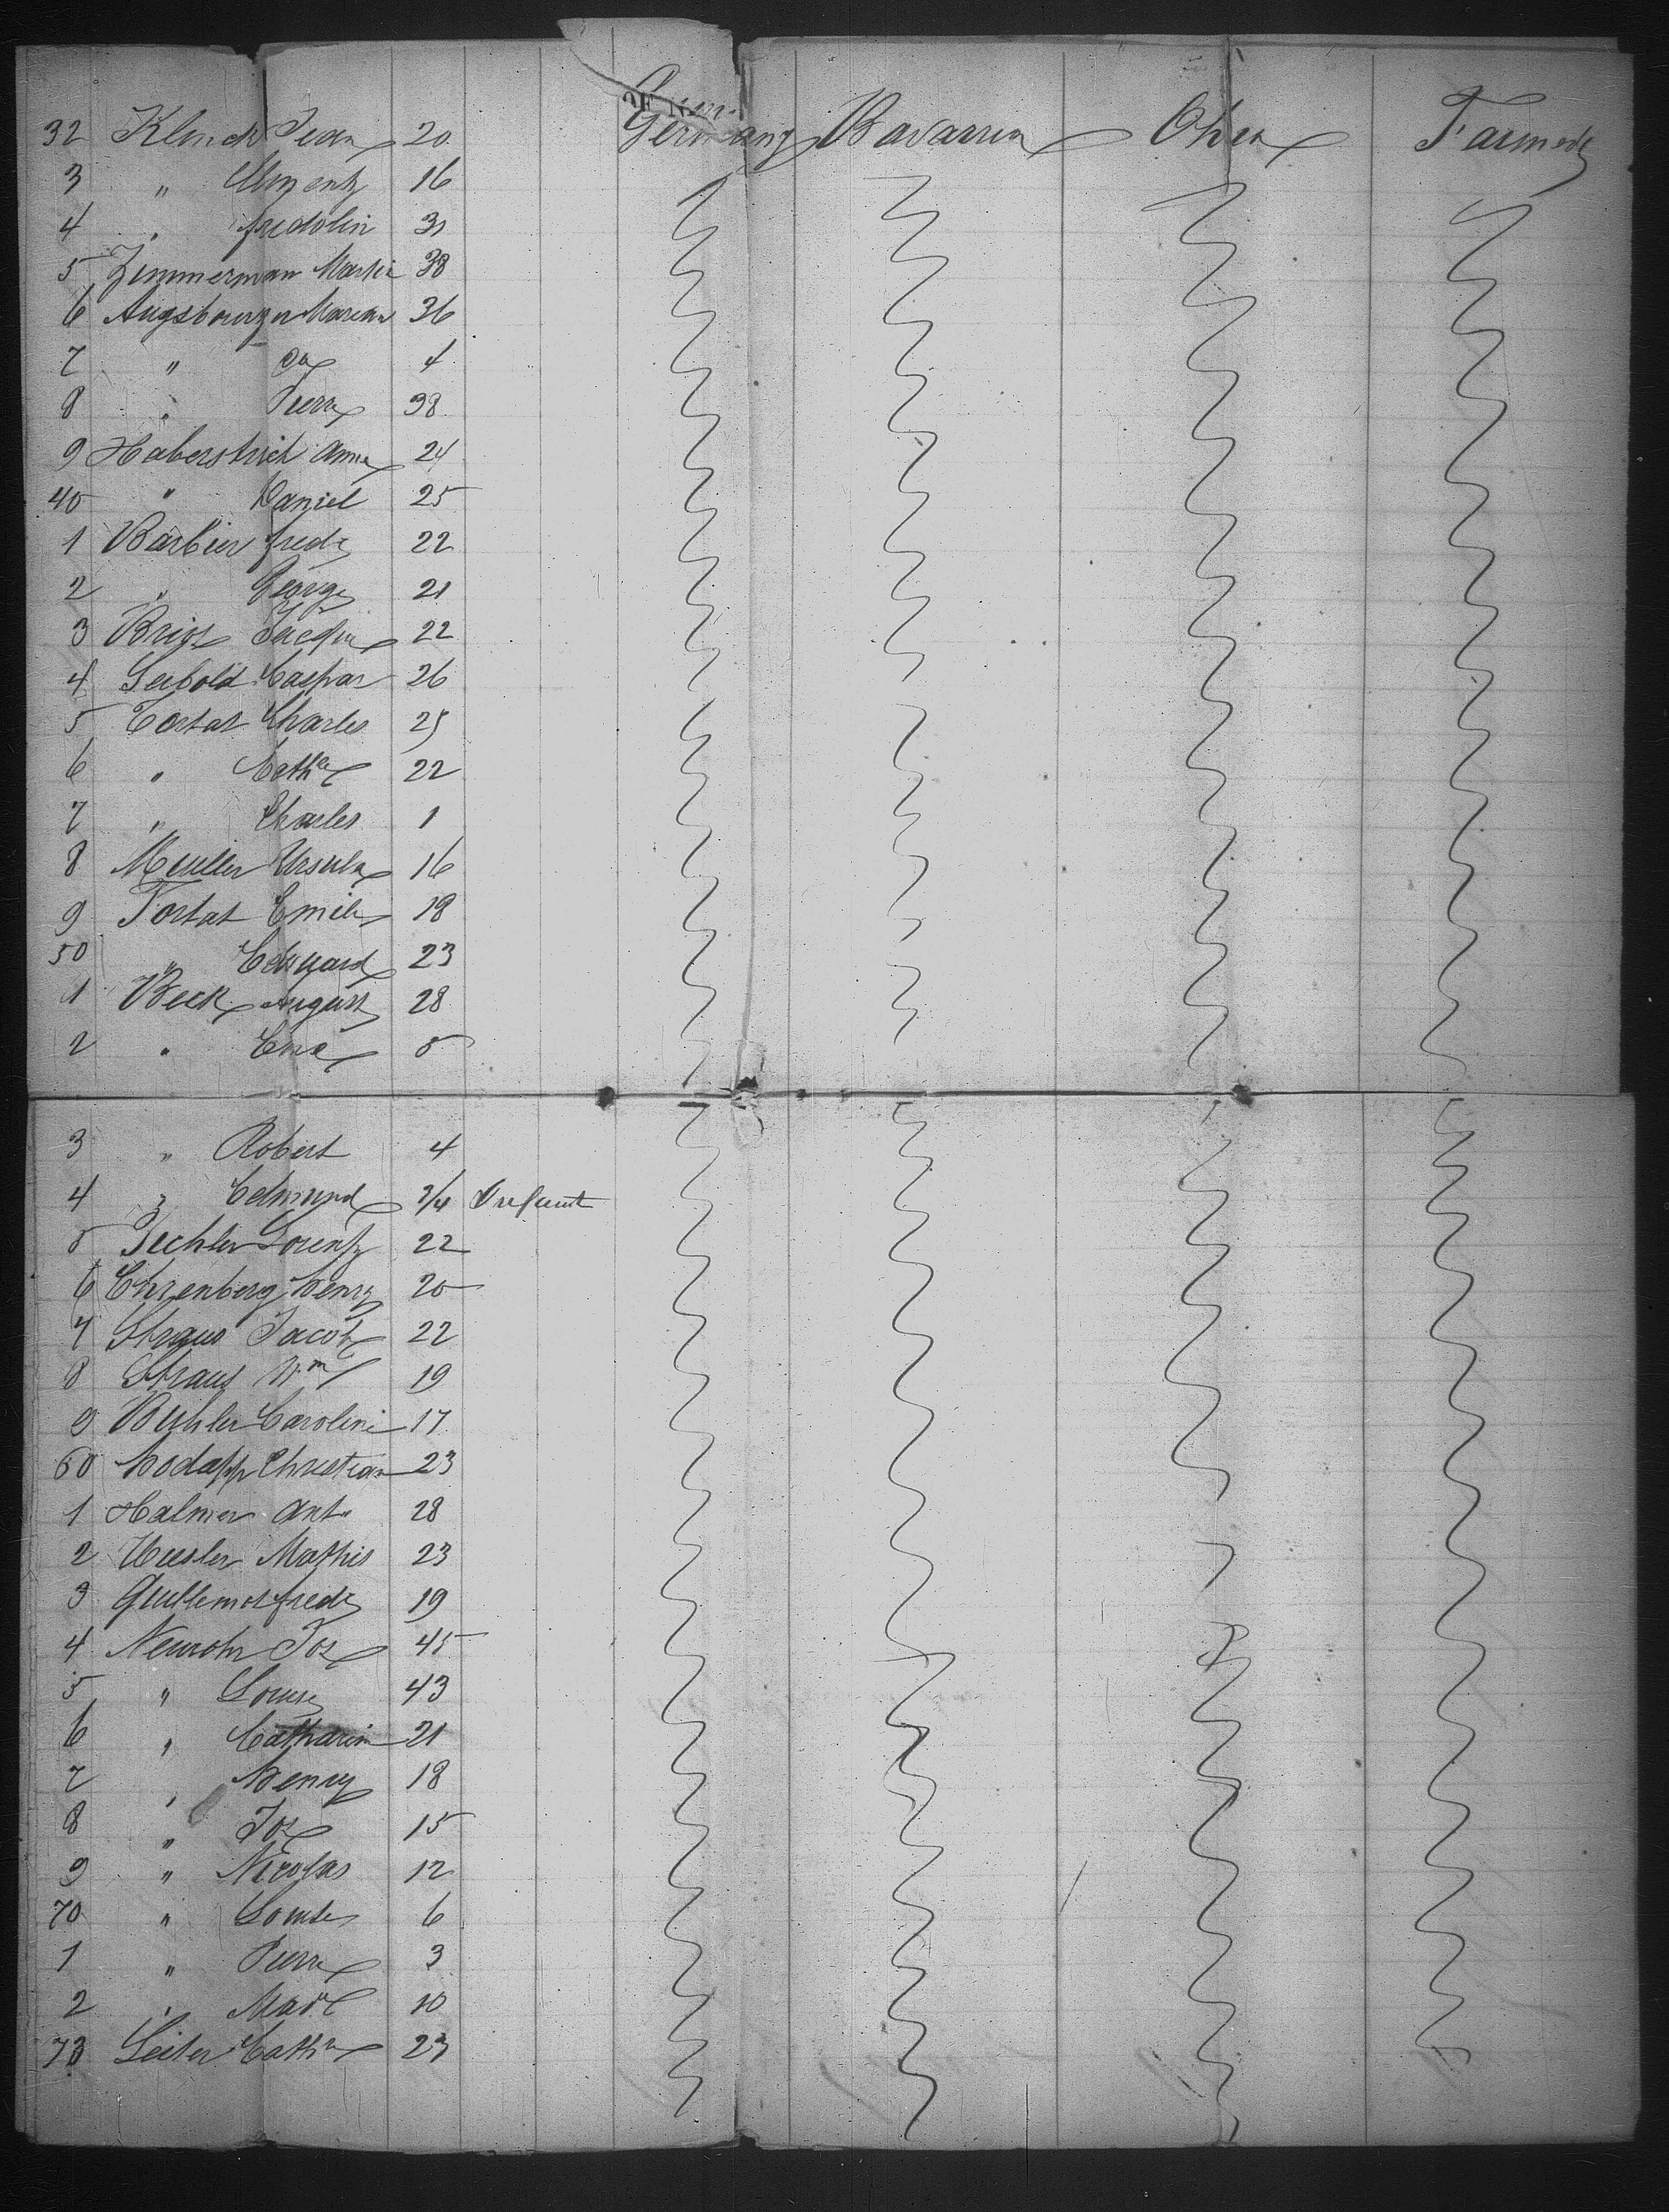 32 Klinck Jean 20 Germany Bavaria Ohio Farmers
3 " 16
4 " fredolin 31
5 Zimmerman Martin 38
6 Augsbourger Marian 36
7 " do 4
8 " Pierre 38
9 Haberstrich Anna 24
40 " Daniel 25
1 Barbier fredk 22
2 " George 21
3 22
4 Seibold Caspar 26
5 Tostat Charles 25
6 " Cathe 22
7 " Charles 1
8 Muller Ursula 16
9 Tostat Emile 18
50 " Edward 23
1 Beck August 28
2 " 5
3 " Robert 4
4 " Edmund 3/4 Infant
5 Lorentz 22
6 Ehrenberg Henry 20
7 Straus Jacob 22
8 Straus Wm 19
9 Buhler Carolin 17
60 Hodapp Christian 23
1 Halmer Ant. 28
2 Mathis 23
3 fredk 19
4 Neurohr Jos 45
5 " Louise 43
6 " Catharin 21
7 " Henry 18
8 " Jos 15
9 " Nicolas 12
70 " Louise 6
1 " Pierre 3
2 " 10
73 Leiter Cathn 23